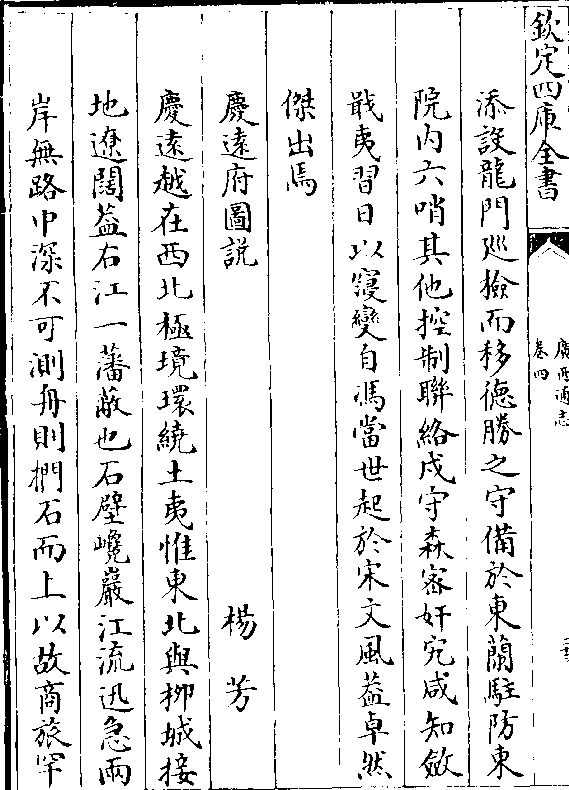 欽定四庫全書
廣西通志
卷四
添設龍門廵檢而移德勝之守備於東蘭駐防東
院内六哨其他控制聯絡戍守森宻奸宄咸知斂
戢夷習日以寖變自馮當世起於宋文風葢卓然
傑出焉
慶遠府圖説
楊芳
慶遠越在西北極境環繞土夷惟東北與栁城接
地遼闊葢右江一藩蔽也石壁巉巖江流迅急兩
岸無路中深不可測舟則捫石而上以故商旅罕